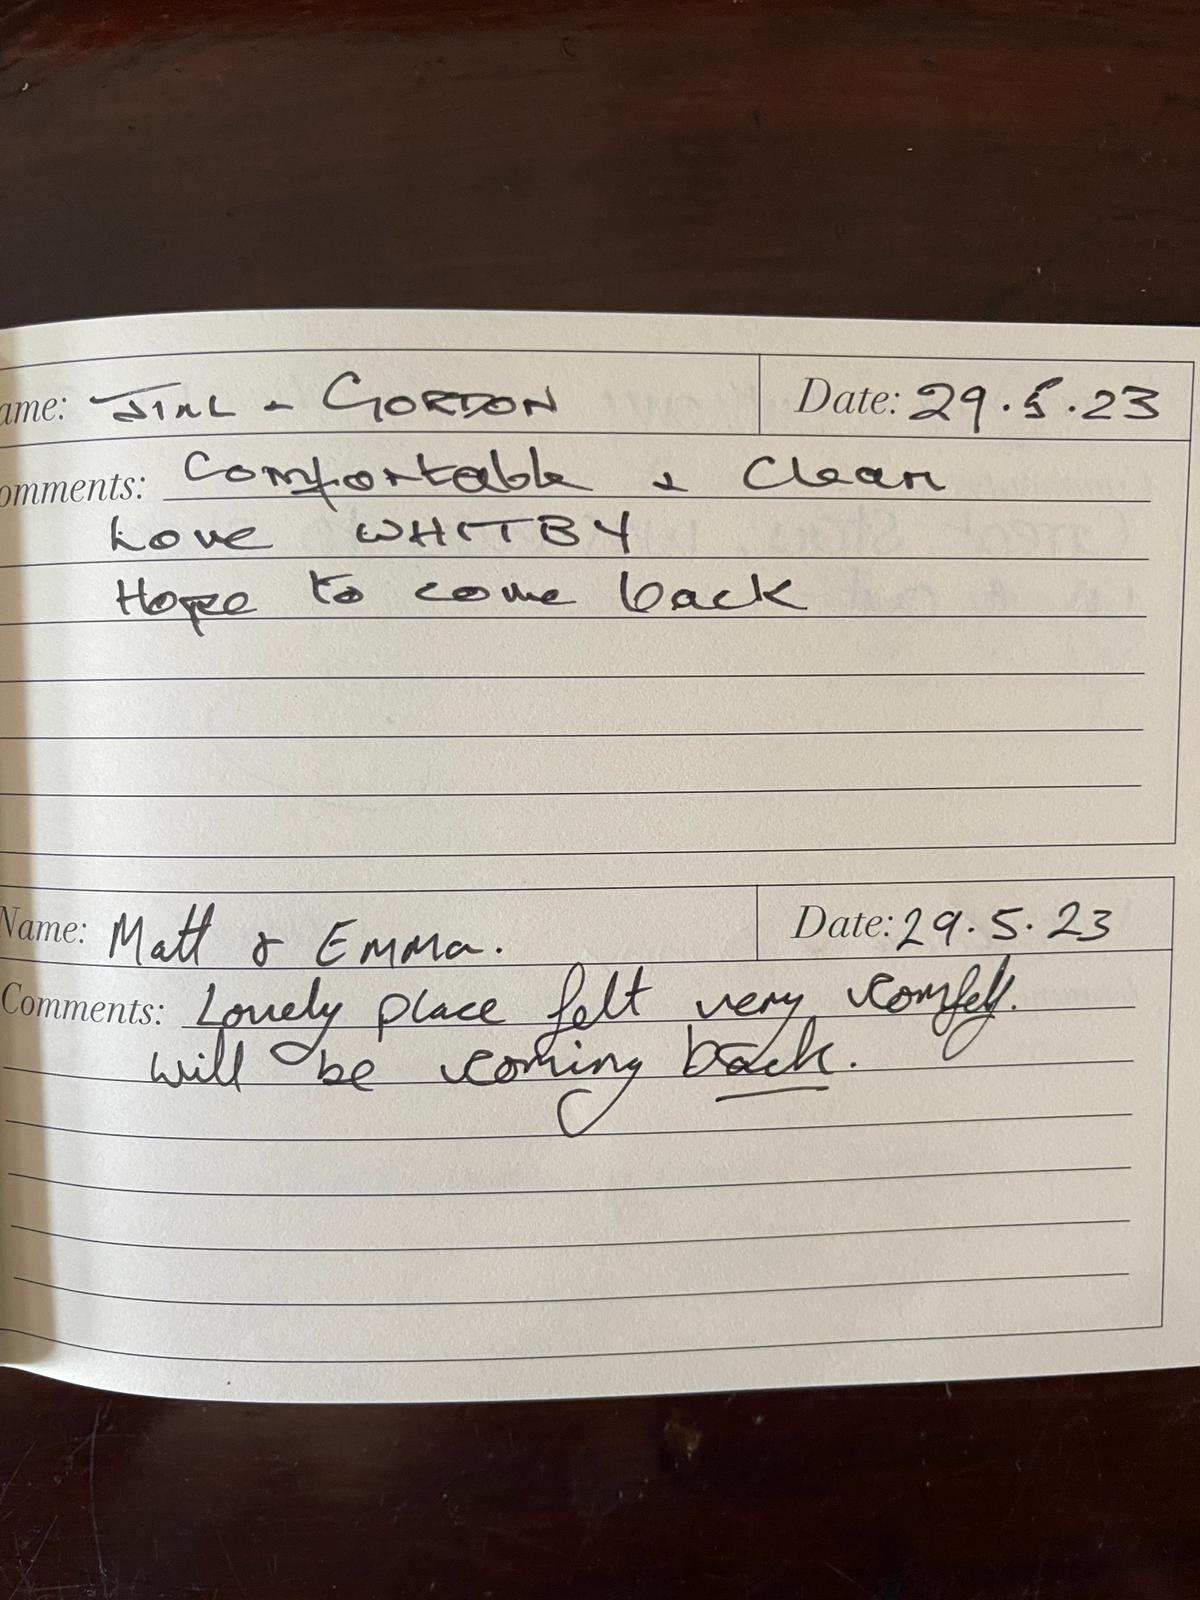 ame: JILL & GORDON Date: 29.5.23
omments: Comfortable & Clean
Love WHITBY
Hope to come back
Name: Matt & Emma. Date: 29.5.23
Comments: Lovely place felt very comfy.
will be coming back.